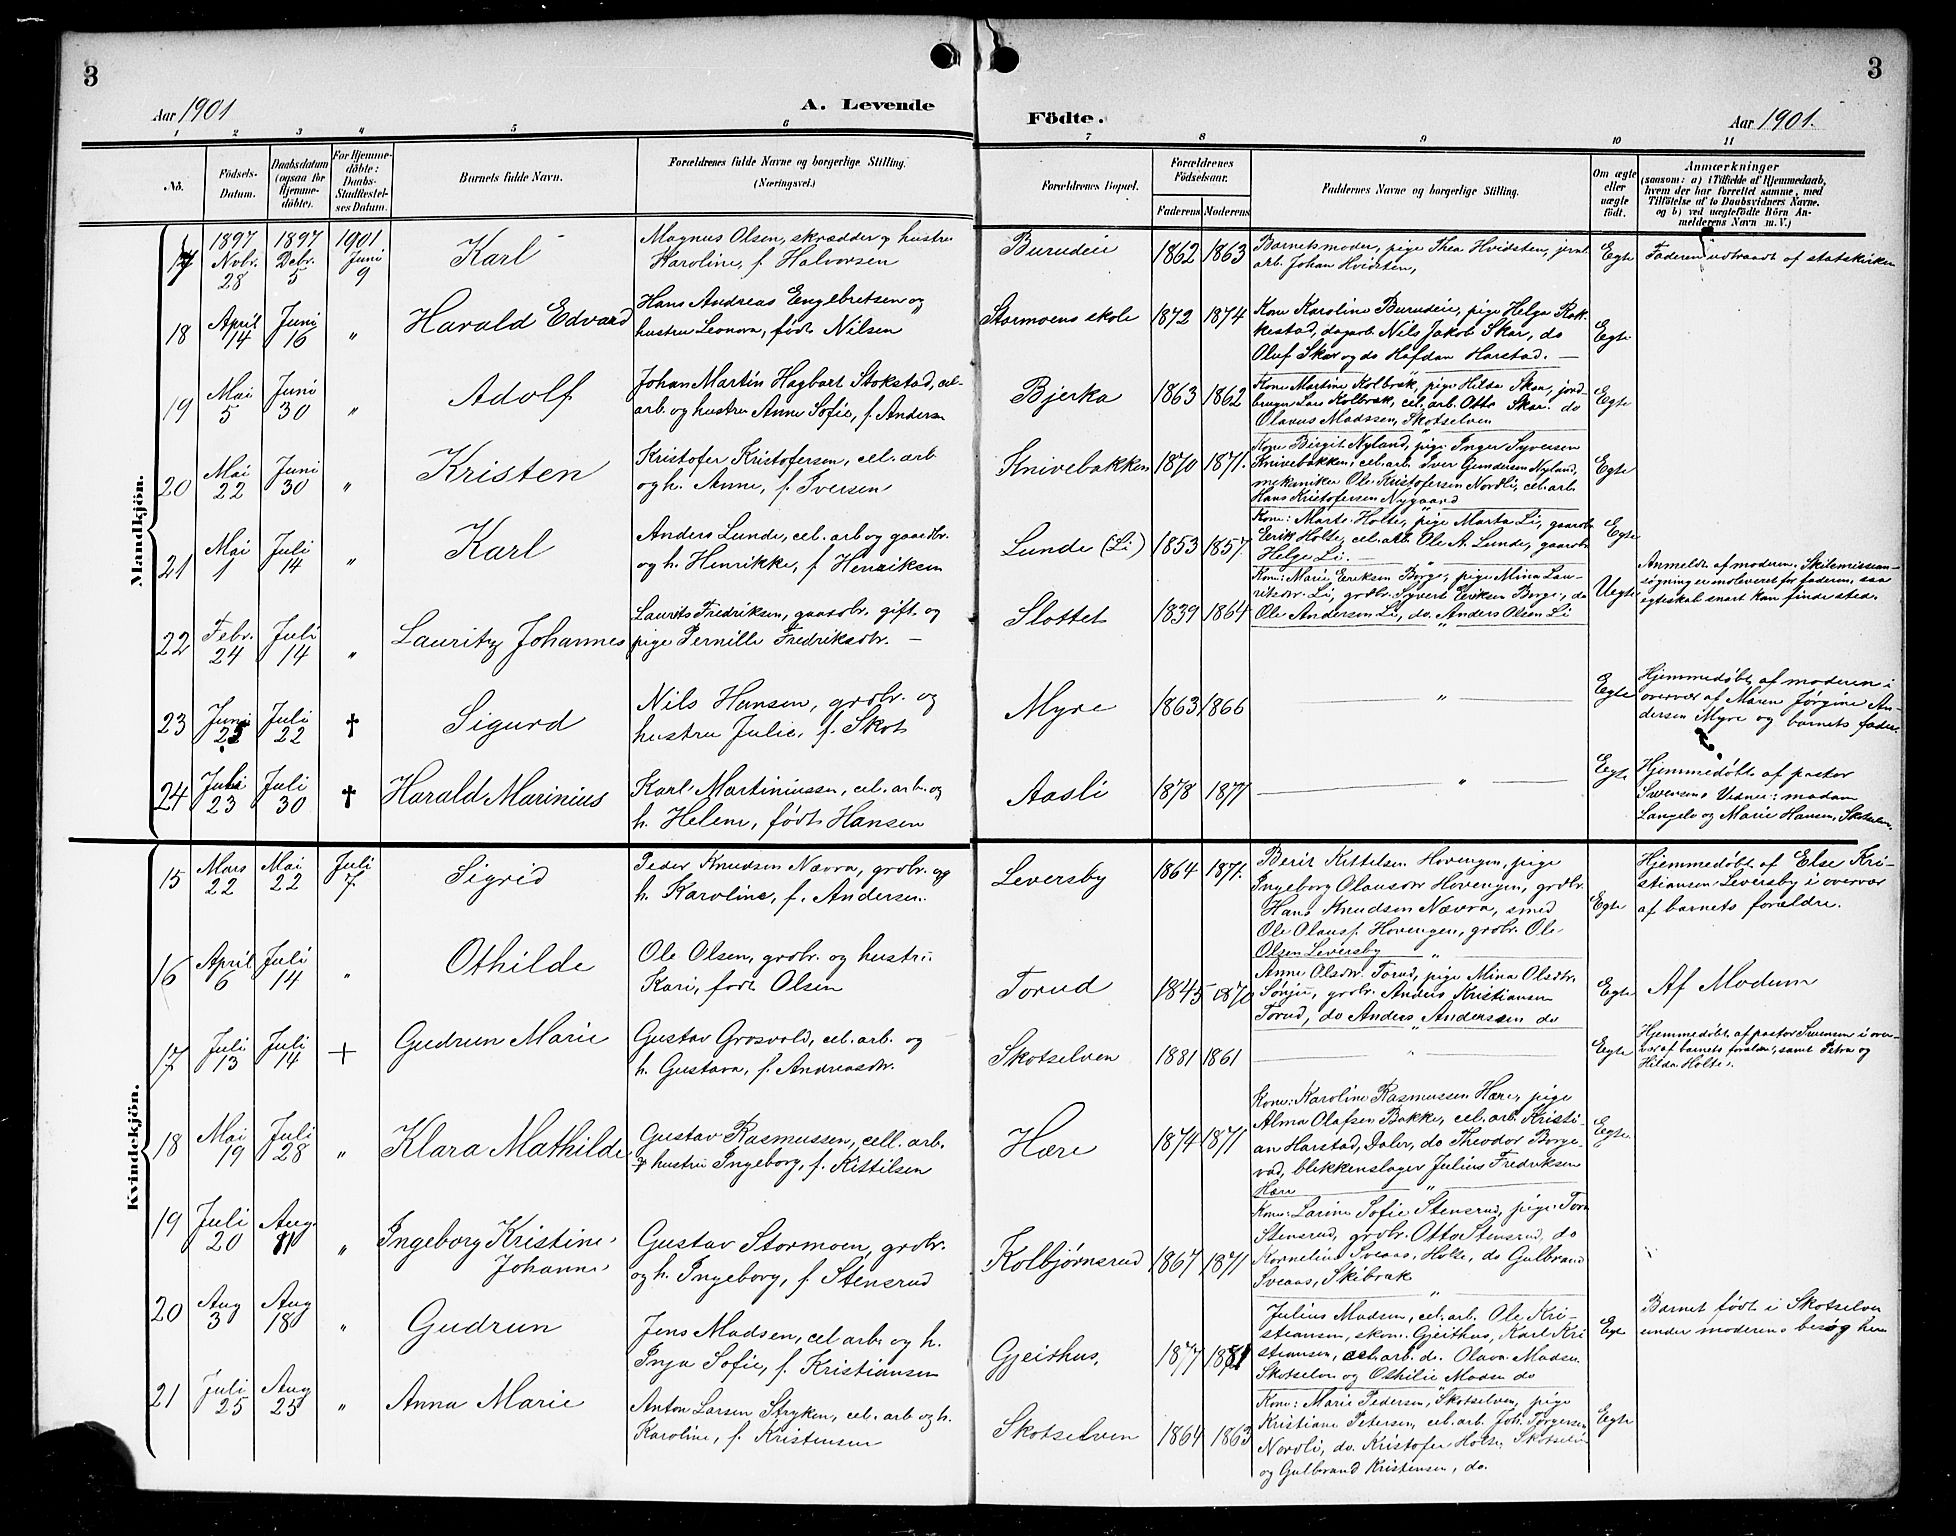 3
3
Aar 1901
A. Levende
Födte.
Aar 1901.
1 2 3 4 5 6 7 8 9 10 11
No.
Födsels-
Datum.
Daabsdatum
(ogsaa for
Hjemme-
döbte).
For Hjemme-
döbte:
Daabs-
Stadfæstel-
ses Datum.
Barnets fulde Navn.
Forældrenes fulde Navne og borgerlige Stilling.
(Næringsvei.)
Forældrenes Bopæl.
Forældrenes
Födselsaar.
Faderens
Moderens
Faddernes Navne og borgerlige Stilling.
Om ægte
eller
uægte
födt.
Anmærkninger
(saasom: a) i Tilfælde af Hjemmedaab,
hvem der har forrettet samme, med
Tilföielse af to Daabsvidners Navne.
og b) ved uægtefödte Börn An-
melderens Navn m. V.)
Mandkjön.
17
1897
Nobr.
28
1897
Debr.
5
1901
Juni
9
Karl
Magnus Olsen, skrædder og hustru
Karoline, f. Halvorsen
Burudeie
1862 1863
Barnets moder, pige Thea Hvidsten, jernb.
arb. Johan Hvidsten,
Egte
Faderen udtraadt af statskirken
18
April
14
Juni
16
"
Harald Edvard
Hans Andreas Engebretsen og
hustru Leonora, født Nilsen
Stormoens skole
1872 1874
Kone Karoline Burudeie, pige Helga Rak-
kestad, dagarb. Nils Jakob Skar, do
Oluf Skar og do Hafdan Harstad.
Egte
19
Mai
5
Juni
30
"
Adolf
Johan Martin Hagbart Stokstad, cel-
arb. og hustru Anne Sofie, f. Andersen
Bjerka
1863 1862
Kone Martine Kolbræk, pige Hilda Skar, jord-
bruger Lars Kolbræk, cel. arb. Otto Skar. do
Olavus Madssen, Skotselven
Egte
20
Mai
22
Juni
30
"
Kristen
Kristofer Kristofersen, cel. arb
og h. Anne, f. Iversen
Knivebakken
1870 1871.
Kone Birgit Nyland, pige Inger Syversen
Knivebakken, cel. arb. Iver Gundersen Nyland,
mekaniker Ole Kristofersen Nordli, cel. arb.
Hans Kristofersen Nygaard
Egte
21
Mai
1
Juli
14
"
Karl
Anders Lunde, cel. arb og gaardbr.
og h. Henrikke, f. Henriksen
Lunde (Li)
1853 1857.
Kone: Marte Holte, pige Marta Li, gaardbr
Eerik Holte, cel. arb. Ole A. Lunde, gaardbr
Helge Li.
Egte
22
Febr.
24
Juli
14
"
Lauritz Johannes
Laurits Fredriksen, gaardbr. gift. og
pige Pernille Fredriksdtr.
Slottet
1839 1864
Kone: Marie Eeriksen Borge, pige Mina Lau-
ritzdtr. Li, grdbr. Syvert Eeriksen Borge, do
Ole Andersen Li, do. Anders Olsen Li
Uegte
Anmeldt af moderen. Skilsmissean-
søgning er indleveret for faderen, saa
egteskab snart kan finde sted.
23
Juni
25
Juli
22
✝
Sigurd
Nils Hansen, grdbr. og
hustru Julie, f. Skot
Myre
1863 1866
"
Egte
Hjemmedøbt af moderen i
overvær af Maren Jørgine An-
dersen Myre og barnets fader.
24
Juli
23
Juli
30
✝
Harald Marinius
Karl Martiniussen, cel. arb. og
h. Helene, født Hansen
Aasli
1878 1877
"
Egte
Hjemmedøbt af pastor
Svensen. Vidner: madam
Langelv og Marie Hansen, Skotselven.
Kvindekjön.
15
Mars
22
Mai
22
Juli
7.
Sigrid
Peder Knudsen Nævra, grdbr. og
h. Karoline, f. Andersen.
Leversby
1864 1871.
Berit Kittelsen Hovengen, pige
Ingeborg Olausdtr Hovengen, grdbr.
Hans Knudsen Nævra, smed
Ole Olausf. Hovengen, grdbr. Ole
Olsen Leversby
Egte
Hjemmedøbt af Else Kri-
stiansen Leversby i overvær
af barnets forældre.
16
April
6
Juli
14
"
Othilde
Ole Olsen, grdbr. og hustru
Kari, født Olsen
Torud
1845 1870
Anne Olsdtr. Torud, pige Mina Olsdtr.
Sønju, grdbr. Anders Kristiansen
Torud, do Anders Andersen do
Egte
Af Modum
17
Juli
13
Juli
14
+
Gudrun Marie
Gustav Grosvold, cel. arb. og
h. Gustava, f. Andreasdtr.
Skotselven
1881 1861
"
Egte
Hjemmedøbt af pastor Svensen i over-
vær af barnets forældre, samt Petra og
Hilda Holte.
18
Mai
19
Juli
28
"
Klara Mathilde
Gustav Rasmussen, cell. arb.
og hustru Ingeborg, f. Kittilsen
Hære
1874 1871
Kone: Karoline Rasmussen Hære, pige
Alma Olafsen Bakke, cel. arb. Kristi-
an Harstad, Daler, do Theodor Borge-
vad, blikkenslager Julius Fredriksen
Hære
Egte
19
Juli
20
Aug.
11
"
Ingeborg Kristine
Johanne
Gustav Stormoen, grdbr.
og h. Ingeborg, f. Stensrud
Kolbjørnsrud
1867 1871
Kone: Larine Sofie Stensrud, pige Tora
Stensrud, grdbr. Otto Stensrud, do
Kornelius Sveaas, Holte, do Gulbrand
Sveaas, Skibræk
20
Aug
3
Aug
18
"
Gudrun
Jens Madsen, cel arb. og h.
Inga Sofie, f. Kristiansen
Gjeithus,
1877 1881
Julius Madsen, cel. arb. Ole Kri-
stiansen, skom. Gjeithus, Karl Kri-
stiansen, cel. arb. do. Olava Madsen
Skotselven og Othilie Madsen do
Egte
Barnet født i Skotselven
under moderens besøg her
21
Juli
25
Aug
25
"
Anna Marie
Anton Larsen Stryken, cel. arb og h.
Karoline, f. Kristensen
Skotselven
1864 1863
Kone: Marie Pedersen, Skotselven, pige
Kristiane Petersen, cel. arb. Joh. Torgersen
Nordli, do. Kristofer Holte, Skotselven
og Gulbrand Kristensen, do.
Egte